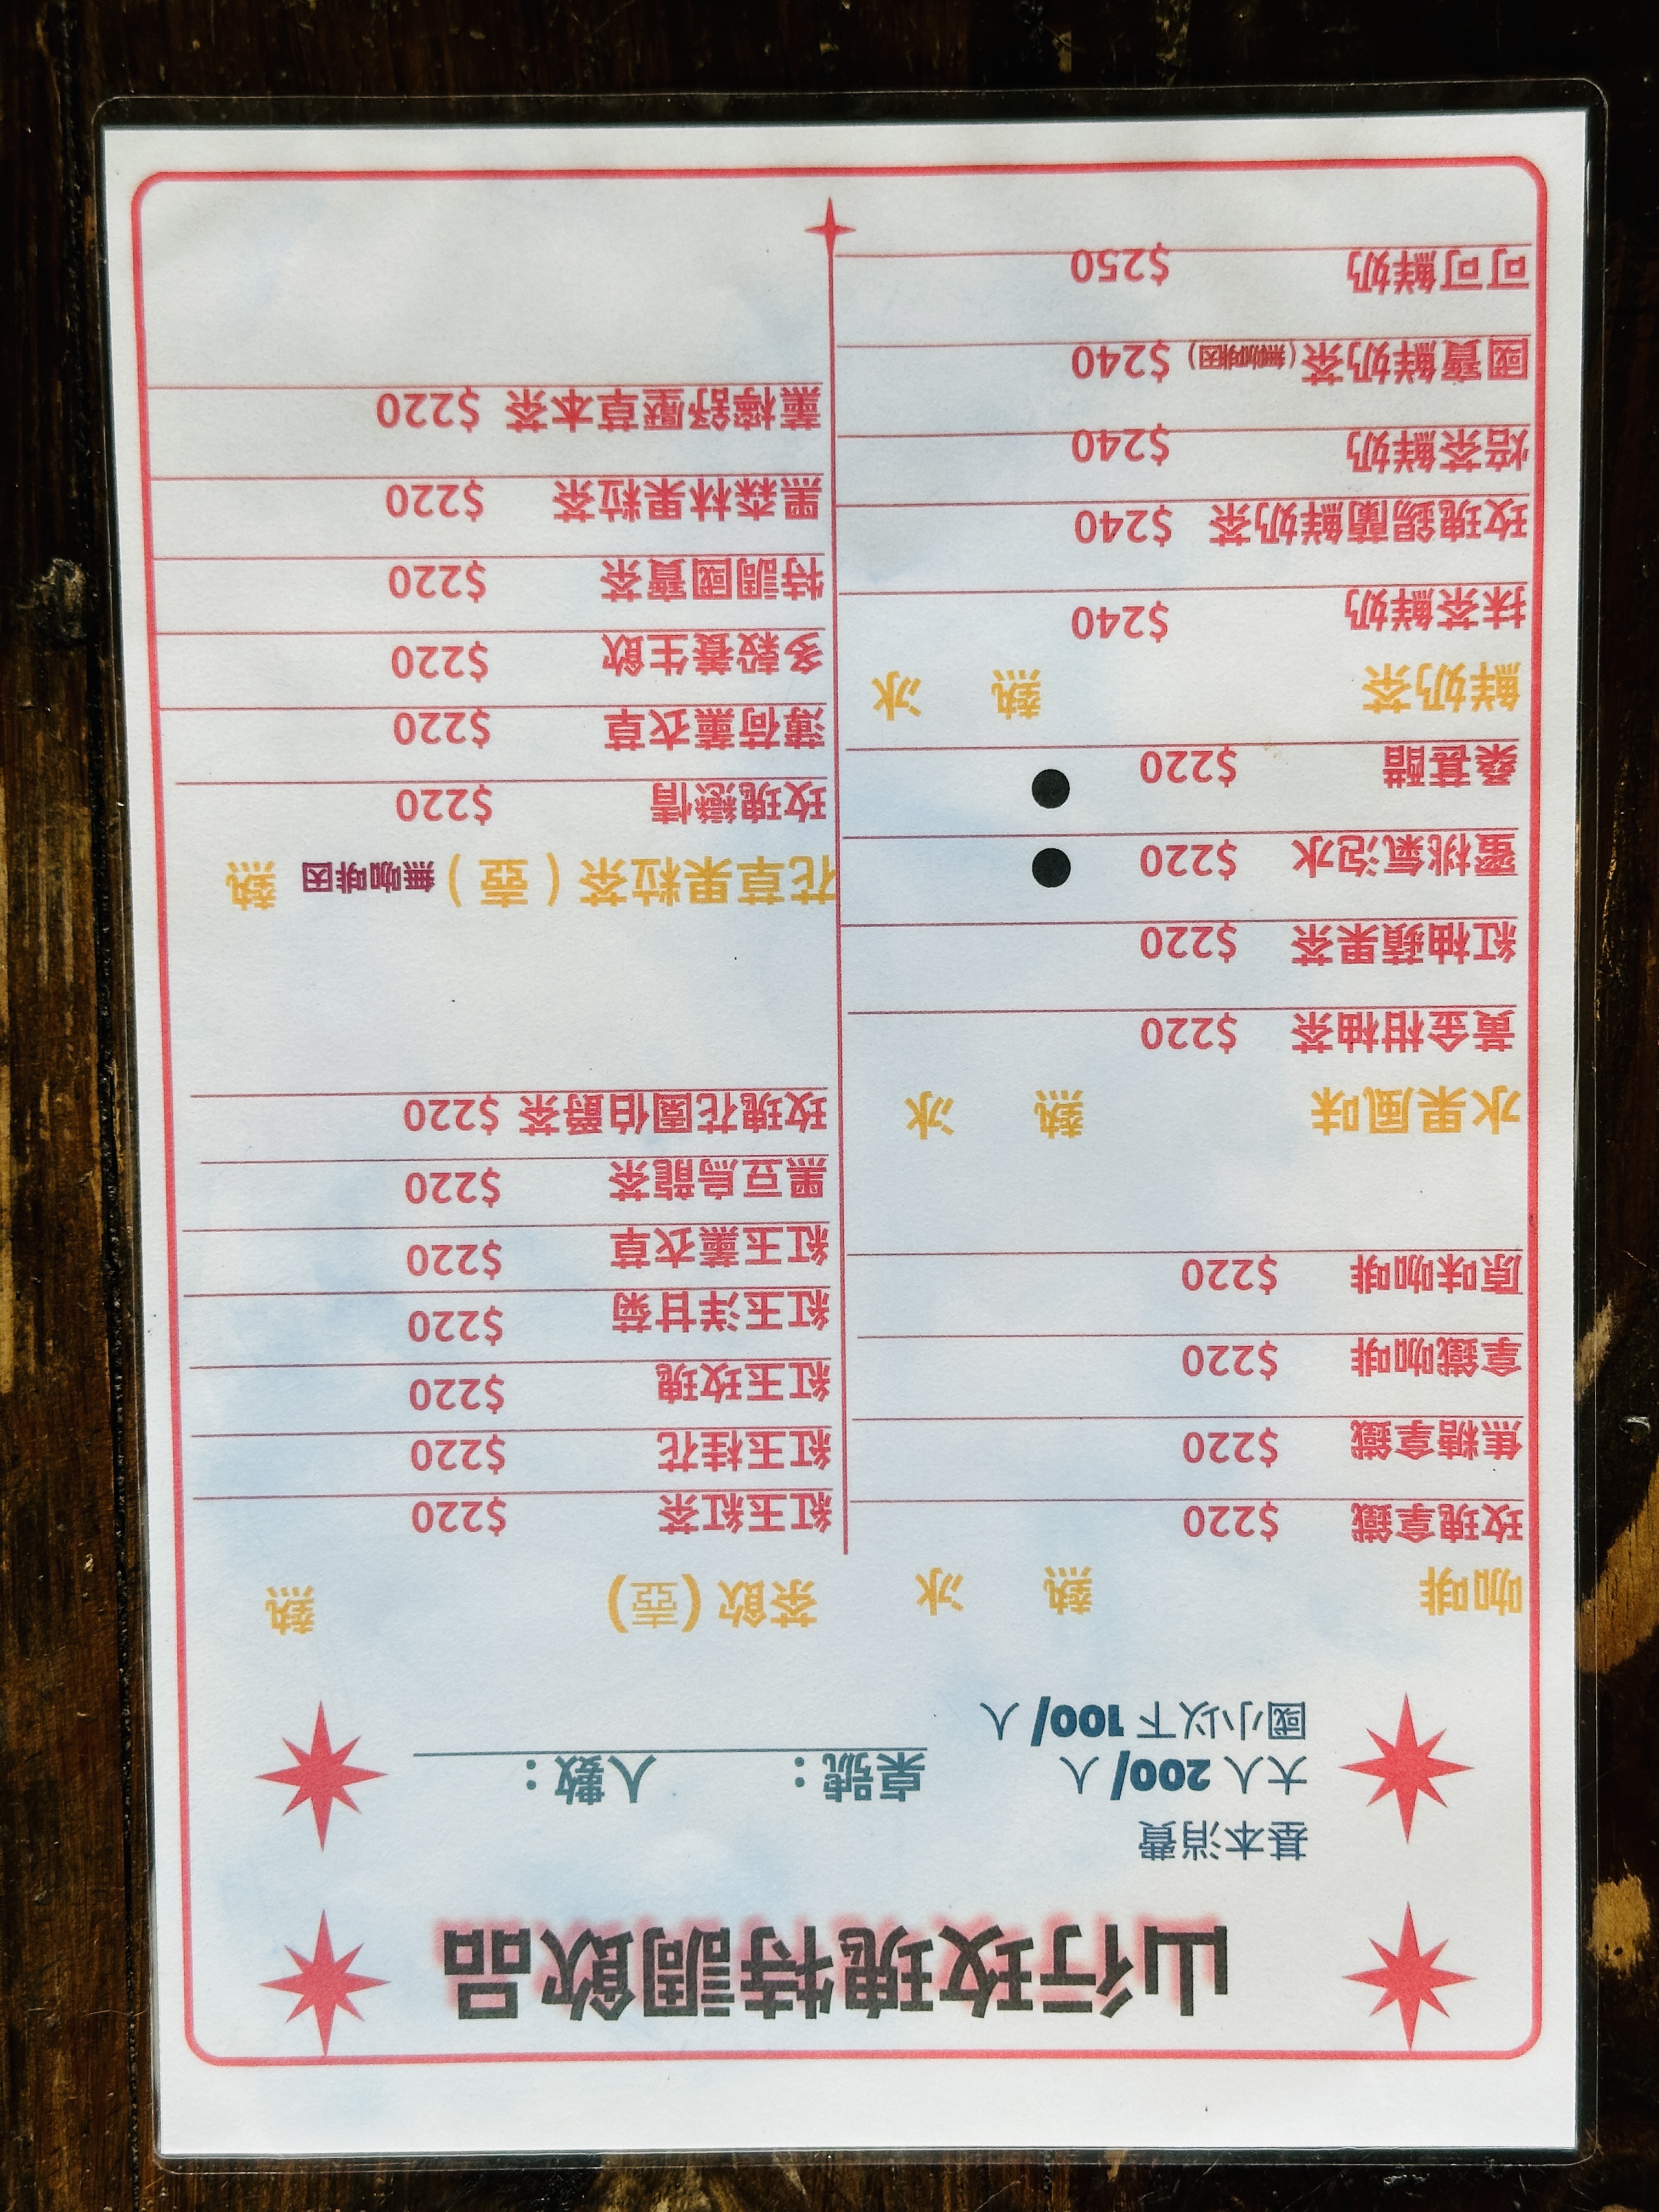 山行玫瑰特調飲品
基本消費
大人 200/人
國小以下 100/人
桌號： 人數：
咖啡 熱 冰
玫瑰拿鐵 $220
焦糖拿鐵 $220
拿鐵咖啡 $220
原味咖啡 $220
水果風味 熱 冰
黃金柑柚茶 $220
紅柚蘋果茶 $220
蜜桃氣泡水 $220
桑葚醋 $220
鮮奶茶 熱 冰
抹茶鮮奶 $240
玫瑰錫蘭鮮奶茶 $240
焙茶鮮奶 $240
國寶鮮奶茶(無咖啡因) $240
可可鮮奶 $250
茶飲(壺) 熱
紅玉紅茶 $220
紅玉桂花 $220
紅玉玫瑰 $220
紅玉洋甘菊 $220
紅玉薰衣草 $220
黑豆烏龍茶 $220
玫瑰花園伯爵茶 $220
花草果粒茶(壺)無咖啡因 熱
玫瑰戀情 $220
薄荷薰衣草 $220
多穀養生飲 $220
特調國寶茶 $220
黑森林果粒茶 $220
薰檸舒壓草本茶 $220